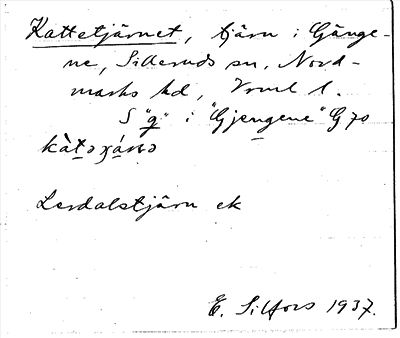 Kattetjärnet, tjärn i Gänge-
ne, Silleruds sn, Nord-
marks hd, Vrml l.
S "g" i "Gjengene" G 70
kàt̲əχá̲rnə
Lerdalstjärn ek
E. Silfors 1937.